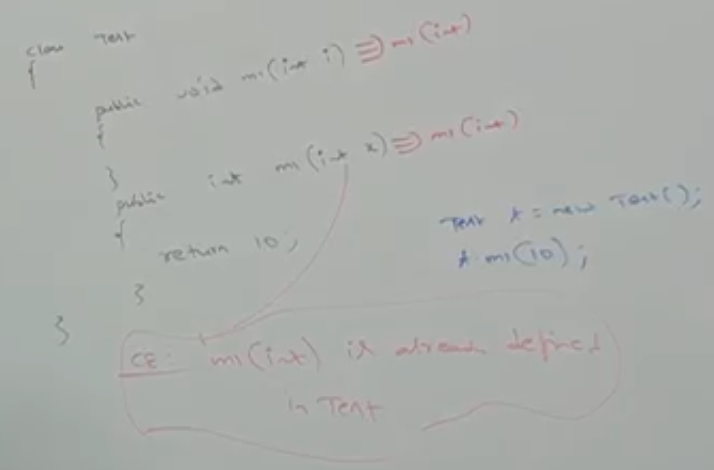 class Test
{
public void m1(int i) ⇒ m1(int)
{
}
public int m1(int x) ⇒ m1(int)
{
return 10;
}
}
Test t = new Test();
t.m1(10);
CE: m1(int) is already defined
in Test